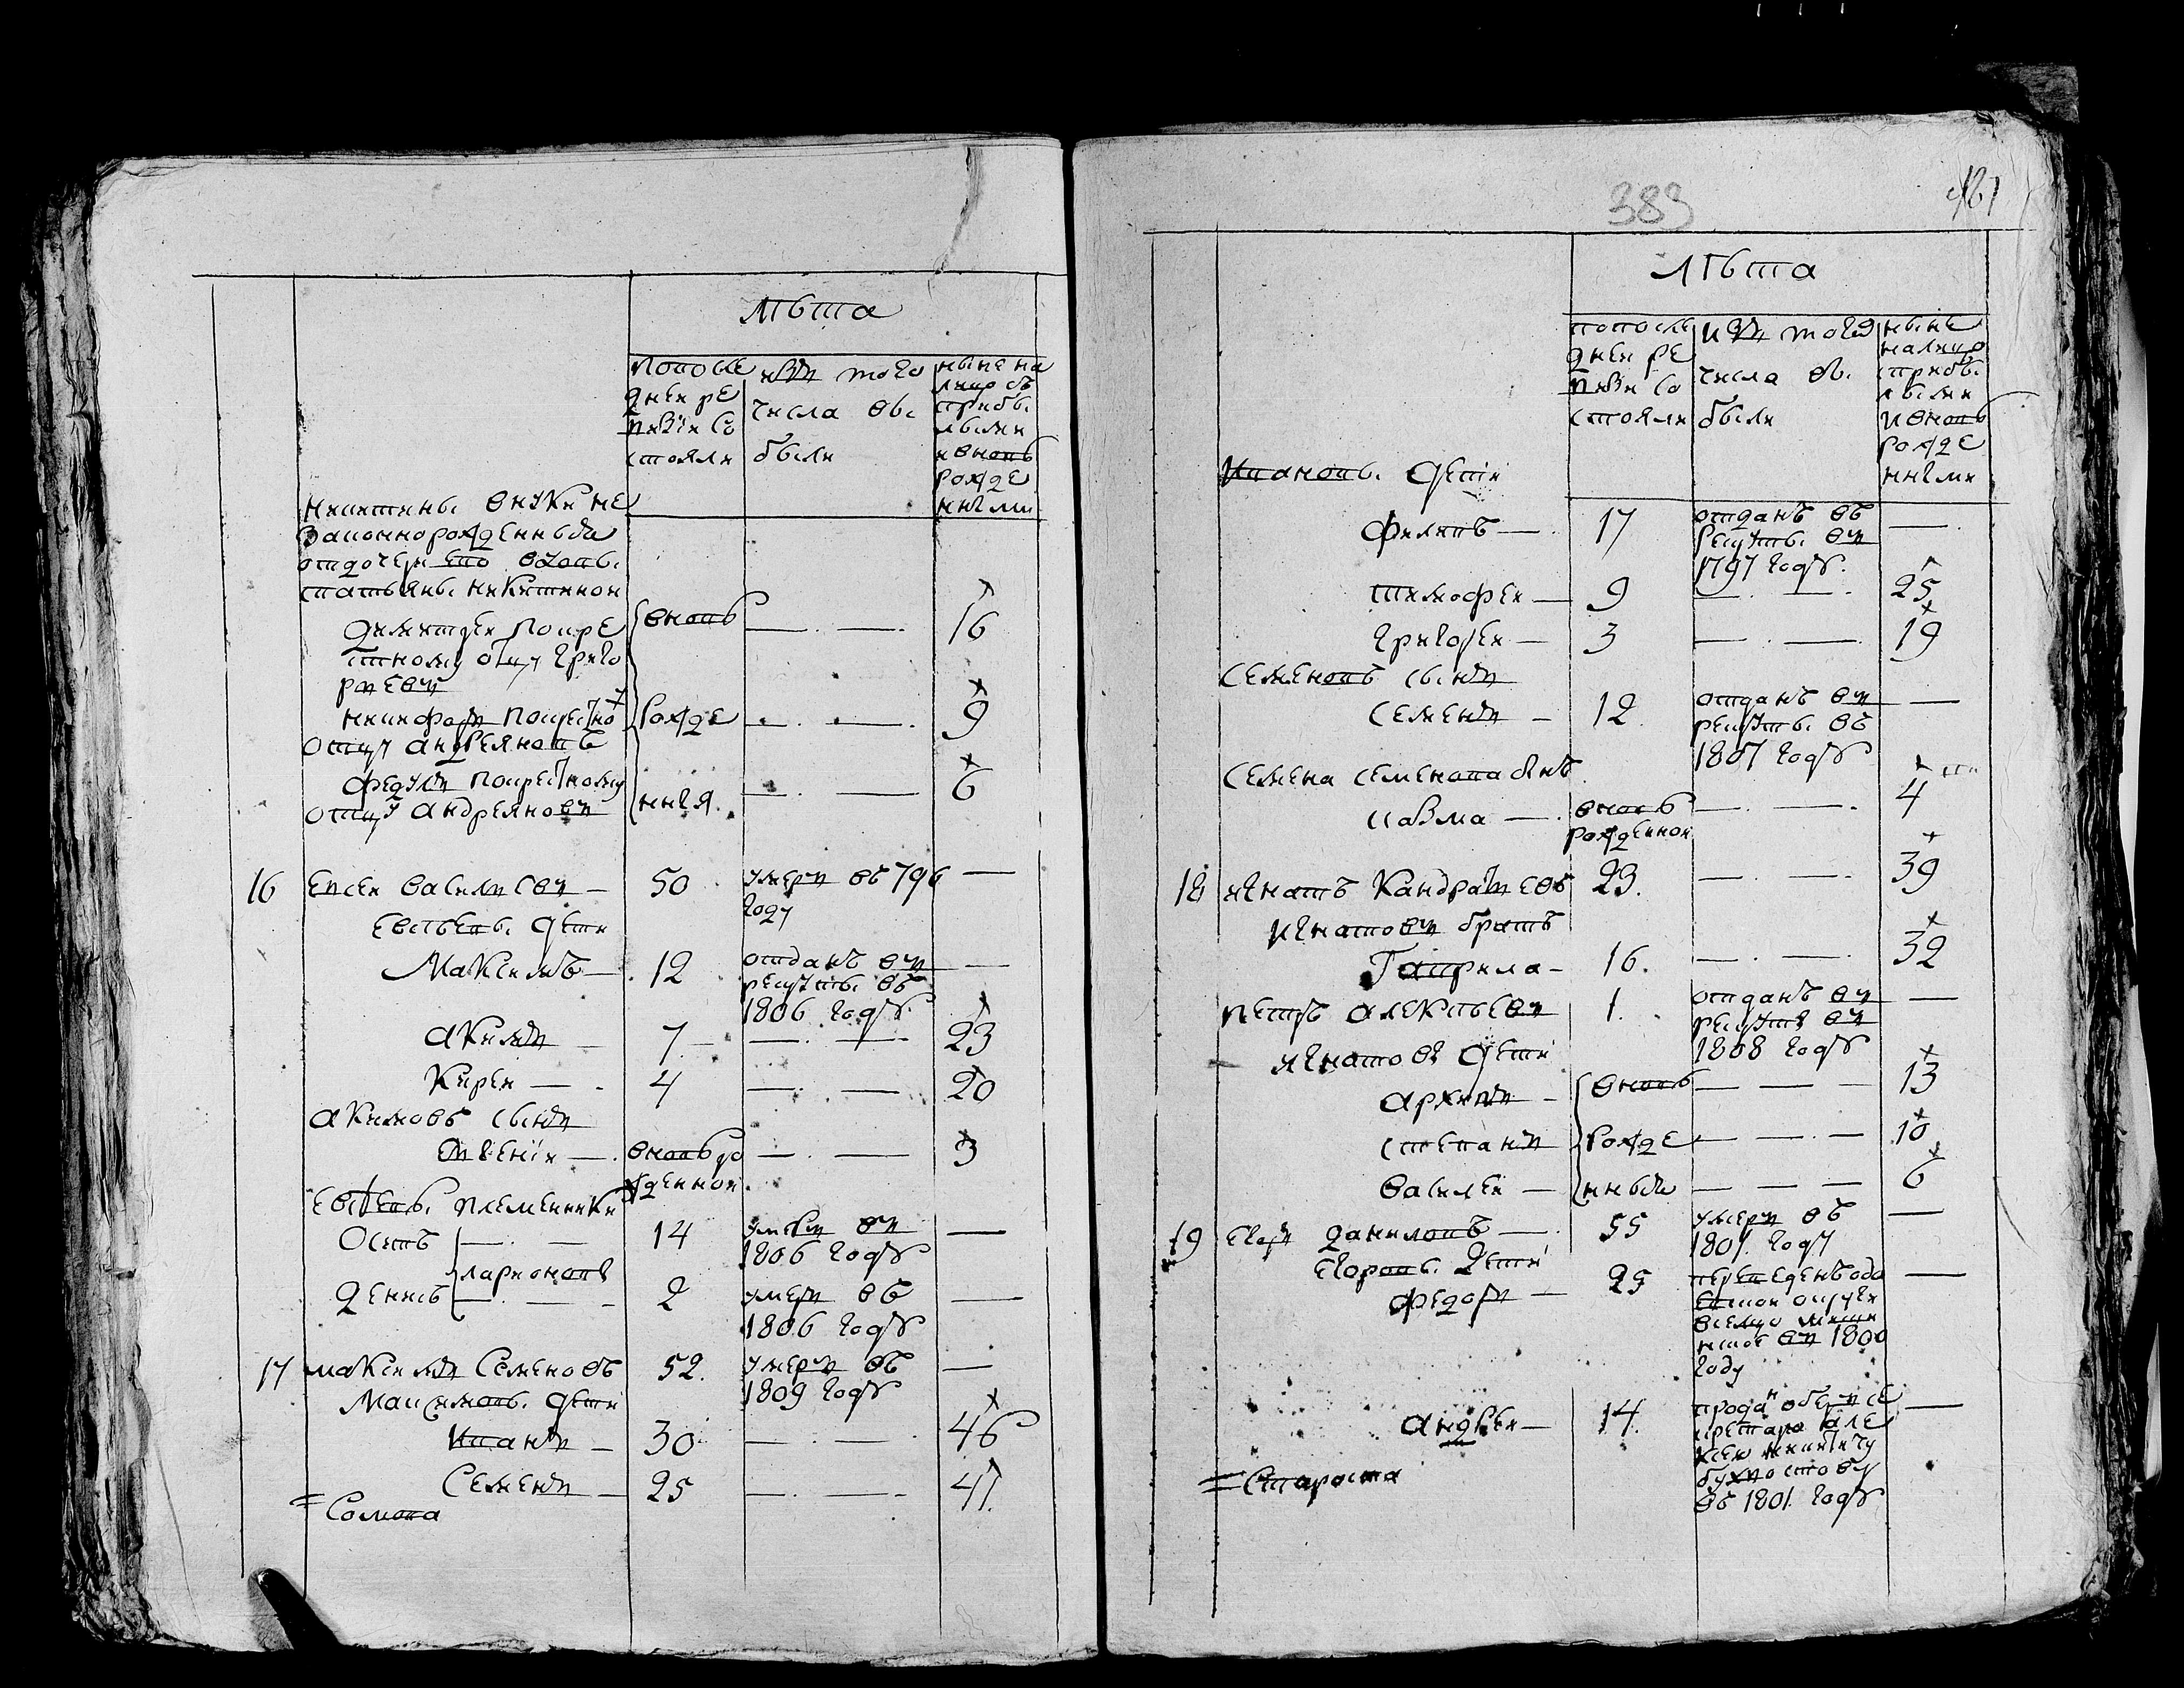 лѣта
По после
дней ре
визiи со
стояли
изъ того
числа вы
были
ныне на
лицо съ
прибы
лыми
и вновь
рожде
нными
никитины внуки не
законнорожденныя
отдочери ево вдовы
татьяны никитиной
димитрей покре
стному отцу григо
риевъ
вновь
— . —
16
никифоръ покрестно
отцу андреяновъ
рожде
— . —
9
федулъ покрестному
отцу андреяновъ
нныя.
— . —
6
16 евсей васильевъ — 50 умеръ въ 796 —
году
евсѣевы дети
Максимъ — 12 отданъ въ —
рекруты въ
1806 годѣ
акимъ — 7 — . — 23
Кирей — 4 — . — 20
акимовъ сынъ
— вновь ро — . — 3
жденной
евсѣевы племенники
Осипъ — . — 14 умеръ въ —
1806 годѣ
ларионовы
денисъ — . — 2 умеръ въ —
1806 годѣ
17 максимъ Семеновъ 52. умеръ въ —
1809 годѣ
Максимовы дети
Иванъ — 30 — . — 46
Семенъ — 25 — . — 41
= Сомова
383
лѣта
попосле
дней ре
визи со
стояли
изъ того
числа вы
были
ныне
налицо
с прибы
лыми
и вновь
рожде
нными
Ивановы дети
филипъ — 17 отданъ въ —
рекруты въ
1797 годѣ.
тимофеи — 9 — . — 25
григореи — 3 — . — 19
семеновъ сынъ
семенъ — 12 отданъ въ —
рекруты въ
1807 годѣ
семена семенова сынъ
козма — вновь — . — 4
рожденной
18 игнатъ Кандратьевъ 23. — . — 39
игнатовъ братъ
Гаврила — 16. — . — 32
петръ алексѣевъ 1. отданъ въ —
рекруты въ
1808 годѣ
игнатовы дети
архипъ — вновь — — — 13
степанъ рожде — — — 10
василеи — нныя — — — 6
19 егоръ даниловъ — 55 умеръ въ —
1801. году
егоровы дети
федоръ — 25 переведенъ
въ 1800
году
андреи — 14. проданъ оберъ се
кретарю але
ксею никитичу
въ 1801 годѣ
= Староста